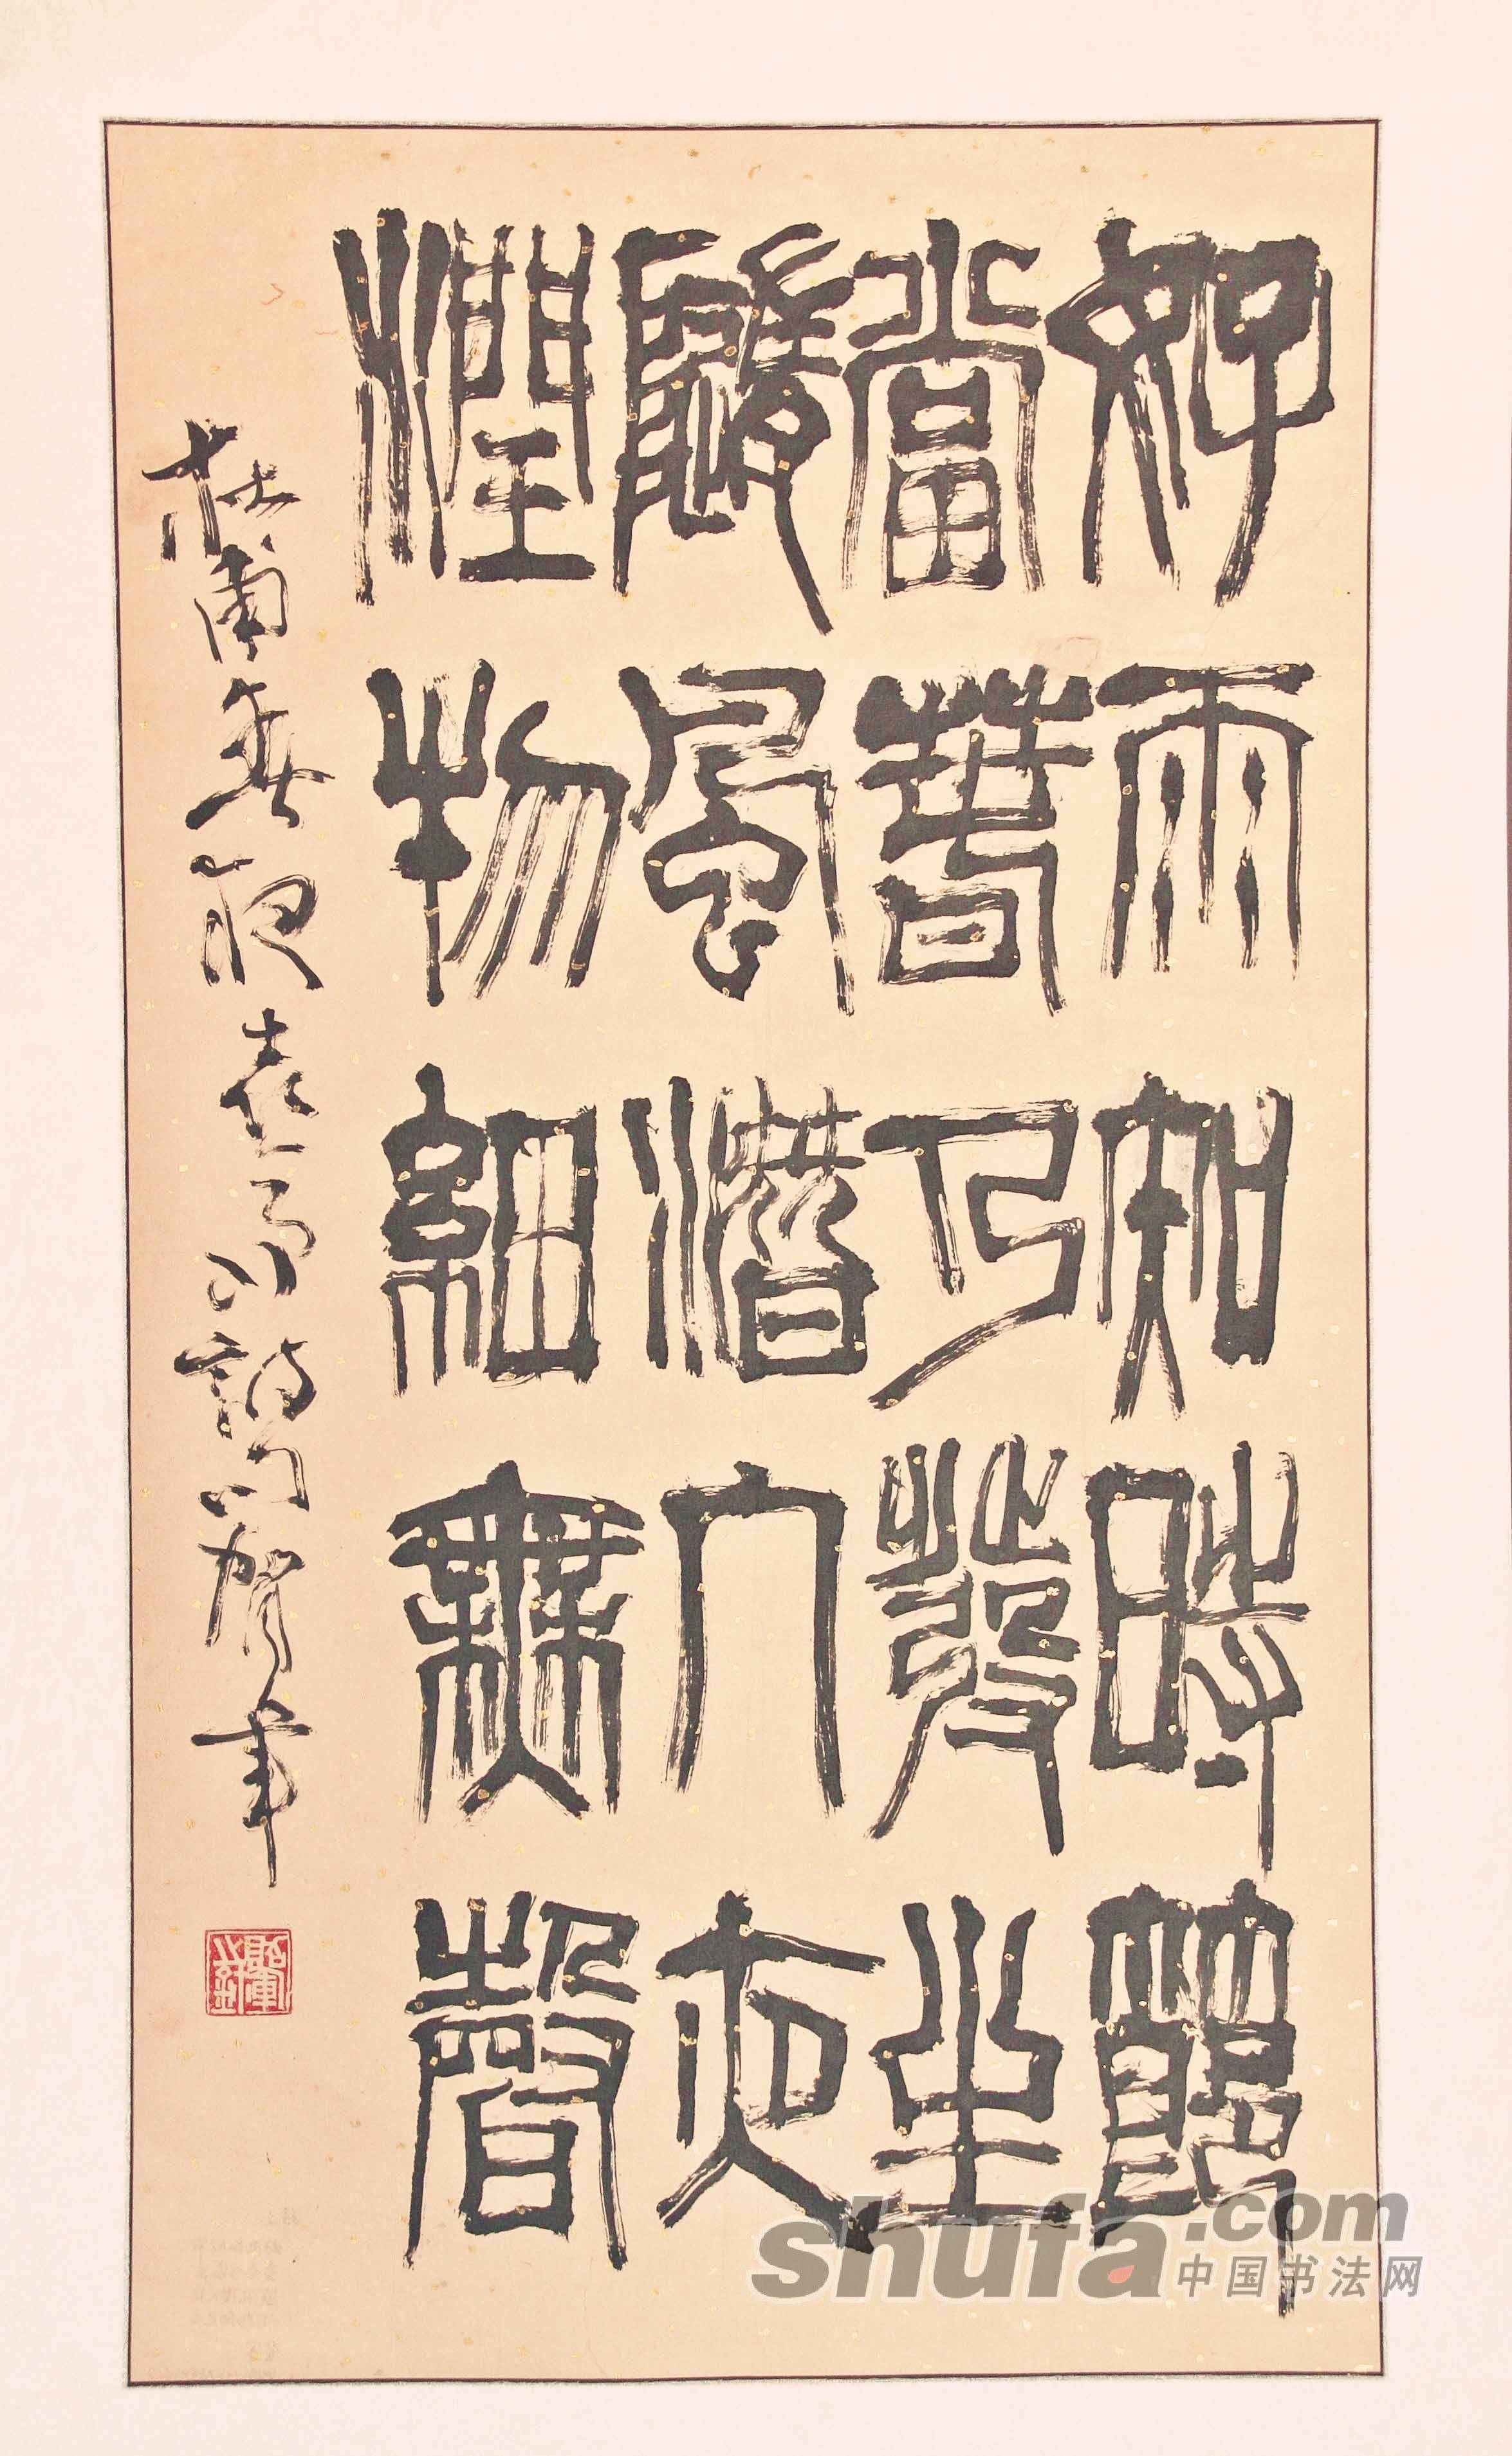 好雨知時節
當春乃發生
隨風潛入夜
潤物細無聲
杜甫春夜喜雨詩 書
shufa.com
中国书法网